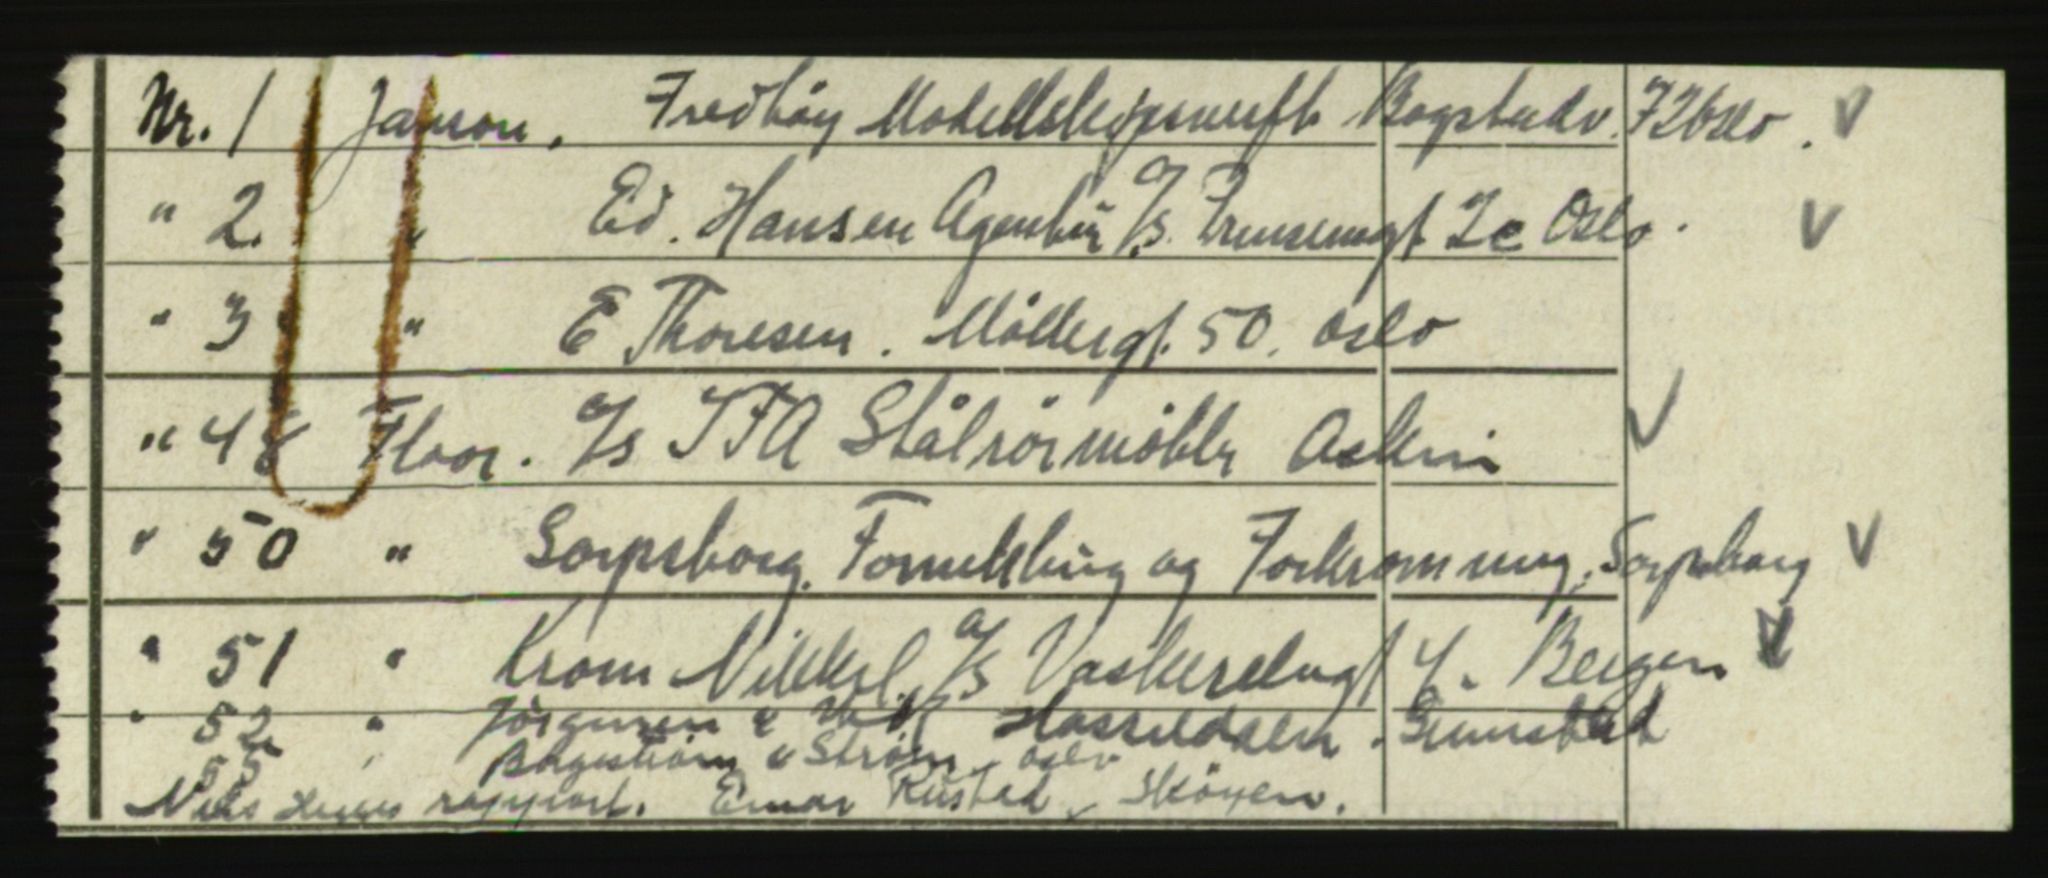 Nr. 1 Janson, Fredhøy Modellskipsverft. Bogstadv. 72 Oslo. V
" 2. " Ed. Hansen Agentur A/S. Prinsensgt. 2c Oslo. V
" 3 " E Thoresen. Möllergt. 50. Oslo
" 48 Floor. A/S IFA Stålrörmöbler Askim V
" 50 " Sarpsborg. Fornikkling og Forkromming, Sarpsborg V
" 51 " Krom Nikkel. A/S Vaskerelvgt 4. Bergen V
" 52 " Jörgensen & Hasseldalen. Grimstad
55 " & Ström Oslo
Nils rapport. Einar Rustad, Sköyen.